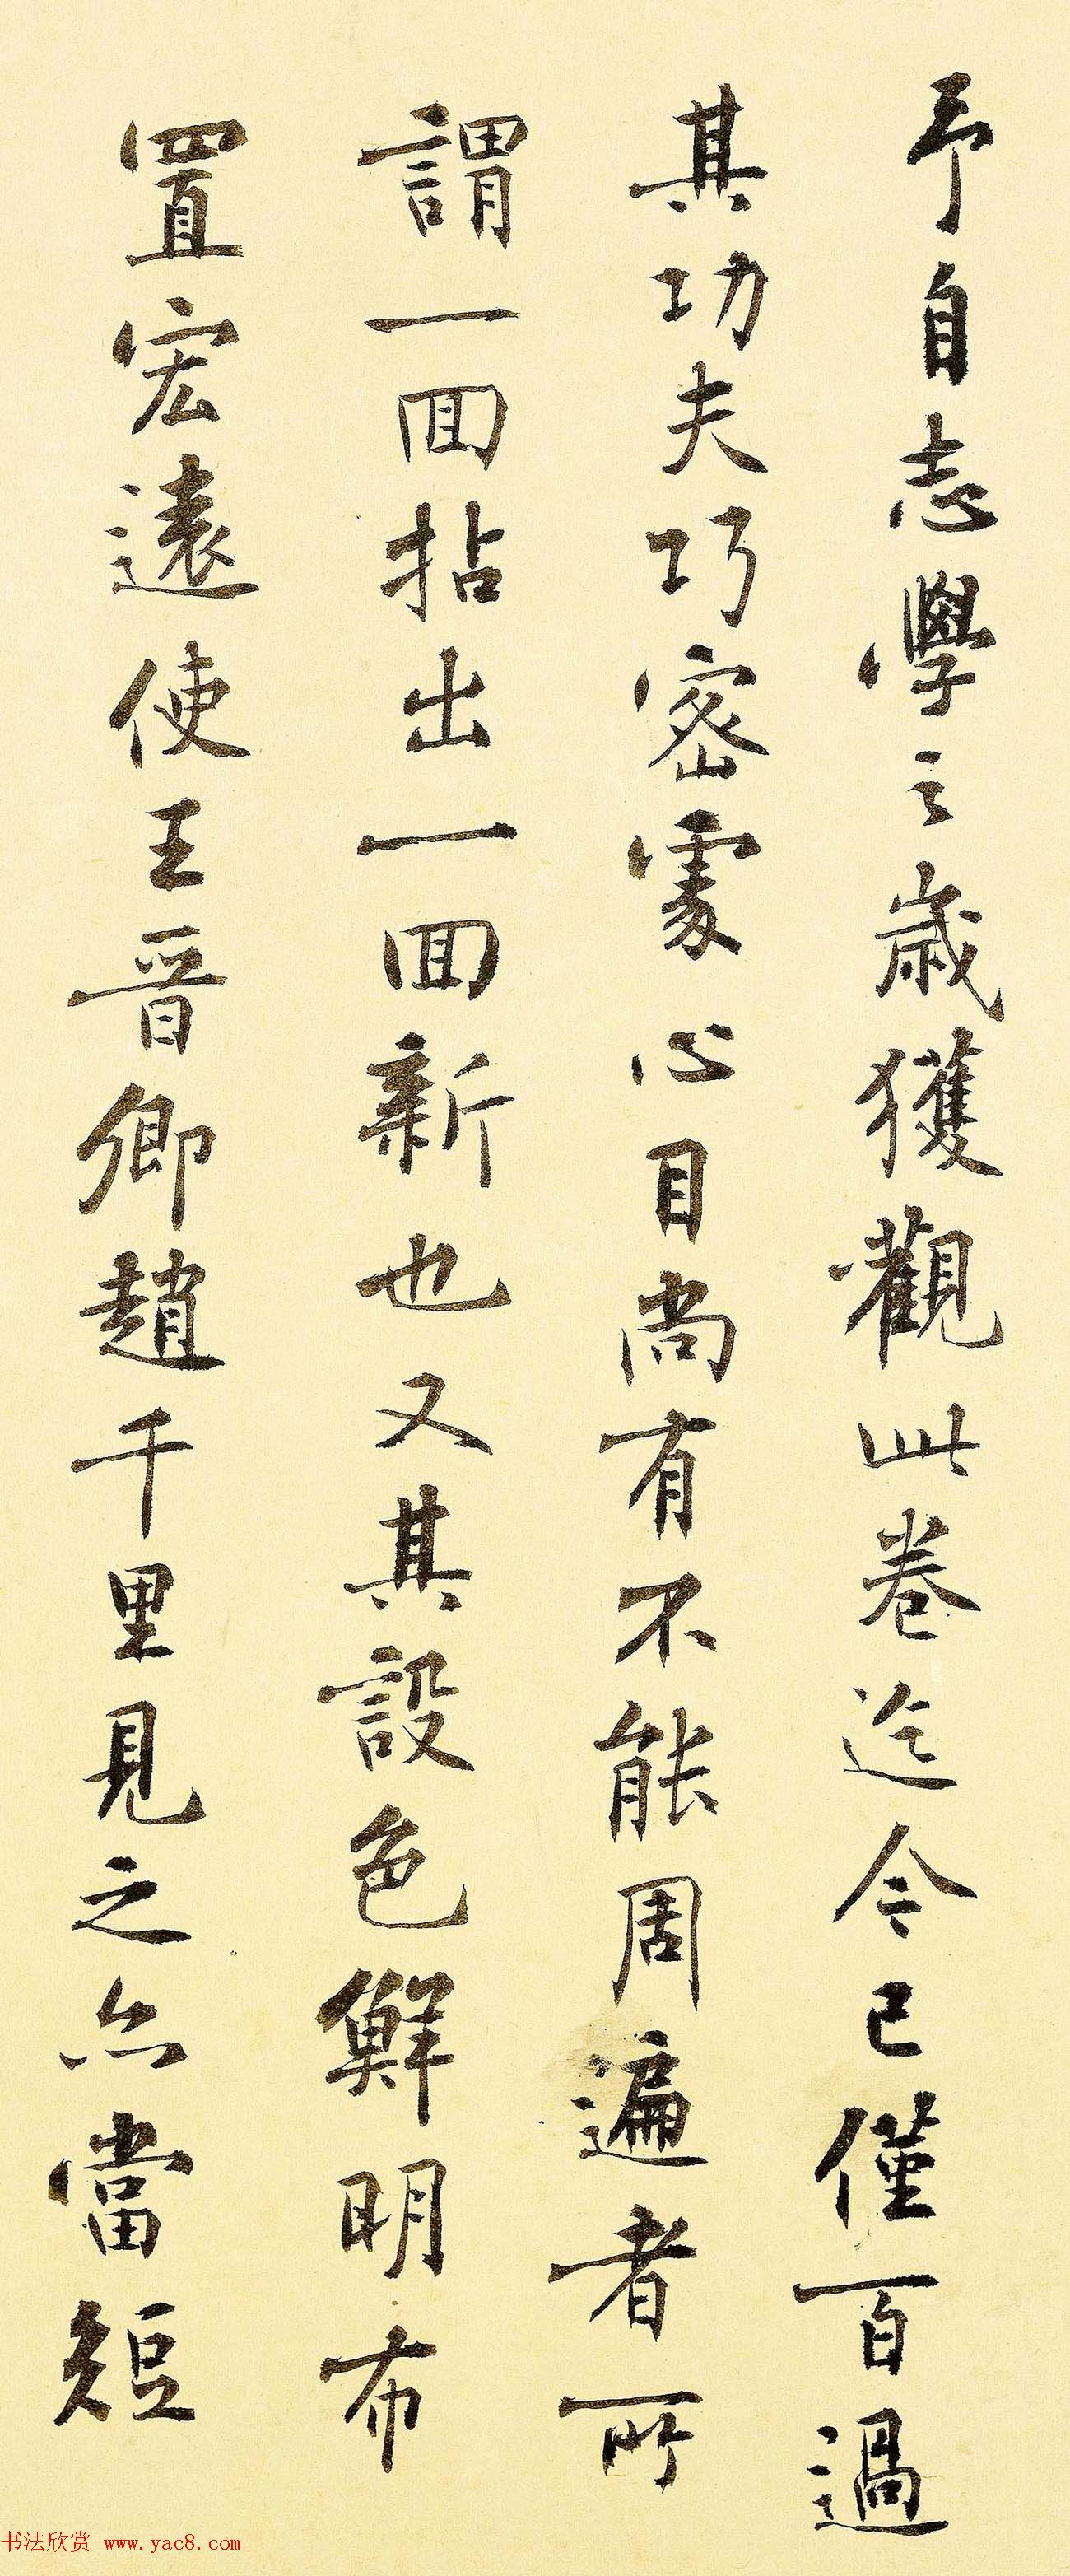 予自志學之歲獲觀此卷迄今已僅百過
其功夫巧密處心目尚有不能周遍者所
謂一回拈出一回新也又其設色鮮明布
置宏遠使王晉卿趙千里見之亦當短
书法欣赏 www.yac8.com